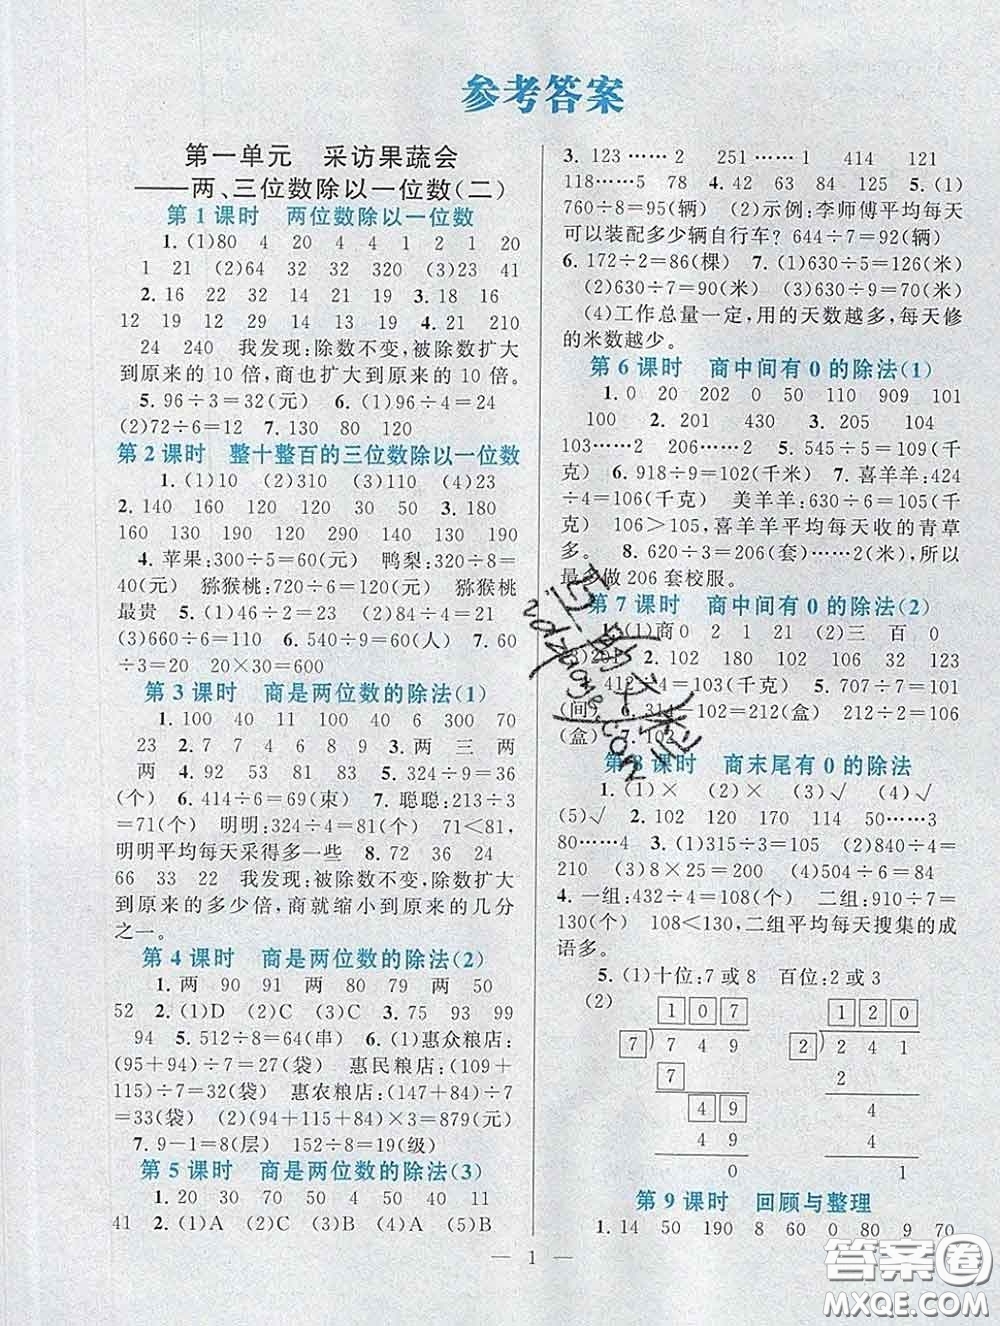 参考答案
第一单元 采访果蔬会
——两、三位数除以一位数(二)
第1课时 两位数除以一位数
1. (1)80 4 20 4 4 1 2 1 20
1 21 (2)64 32 32 320 (3)23 41
2. 16 22 12 14 21 19 3. 18 16
12 19 13 29 14 13 19 4. 21 210
24 240 我发现:除数不变,被除数扩大
到原来的 10 倍,商也扩大到原来的 10 倍。
5. 96÷3=32(元) 6. (1)96÷4=24
(2)72÷6=12 7. 130 80 120
第2课时 整十整百的三位数除以一位数
1. (1)10 (2)310 (3)110 (4)23
2. 140 160 120 3. 150 190 180
160 130 190 120 290 140 150 190
4. 苹果:300÷5=60(元) 鸭梨:320÷8=
40(元) 猕猴桃:720÷6=120(元) 猕猴桃
最贵 5. (1)250÷5=50 (2)84÷4=21
(3)660÷6=110 6. 540÷9=60(人) 7. 60
÷3=20 20×30=600
第3课时 商是两位数的除法(1)
1. 100 40 11 100 300 100 70
23 2. 7 7 4 6 8 9 3. 两 三 两
两 4. 92 53 81 82 5. 324÷9=36
(个) 6. 414÷6=69(束) 7. 聪聪:213÷3
=71(个) 明明:324÷4=81(个) 71<81,
明明平均每天采得多一些 8. 72 36 24
66 33 22 我发现:被除数不变,除数扩大
到原来的多少倍,商就缩小到原来的几分
之一。
第4课时 商是两位数的除法(2)
1. 两 90 91 两 80 81 两 两 50
52 2. (1)D (2)C (3)C 3. 75 93 99
94 5. 512÷8=64(串) 6. (1)惠众粮店:
(95+94)÷7=27(袋) 惠民粮店:(110+
114)÷7=32(袋) 惠农粮店:(147+84)÷7
=33(袋) (2)(94+115+84)×3=879(元)
7. 9-1=8(层) 152÷8=19(级)
第5课时 商是两位数的除法(3)
1. 20 30 70 50 40 11
41 2. (1)A (2)C (3)B (4)A (5)B
3. 123……2 251……1 141 414 121
118……5 132 85……5 5. (1)
760÷8=95(辆) (2)示例:李师傅平均每天
可以装配多少辆自行车? 644÷7=92(辆)
6. 172÷2=86(棵) 7. (1)630÷5=126(米)
(2)630÷7=90(米) (3)630÷9=70(米)
(4)工作总量一定,用的天数越多,每天修
的米数越少。
第6课时 商中间有0的除法(1)
1. 0 20 202 0 50 110 909 101
100 2. 201 430 3. 205 104
103……2 206……2 5. 545÷5=109(千
克) 6. 918÷9=102(千米) 7. 喜羊羊:424
÷4=106(千克) 美羊羊:630÷6=105(千
克) 106>105,喜羊羊平均每天收的青草
多。 8. 620÷3=206(套)……2(米),所以
最 做 206 套校服。
第7课时 商中间有0的除法(2)
1. (1)商 0 2 1 21 (2)三 百 0
2. 102 180 102 106 32 123
412÷4=103(千克) 5. 707÷7=101
(间) =212(盒) 212÷2=106
(盒) 7. 102
第8课时 商末尾有0的除法
1. (1)× (2)× (3)√ (4)√
(5)√ 2. 102 120 170 114 50……3
80……4 3. (1)315÷3=105 (2)840÷4=
210 (3)8×25=200 (4)504÷6=84
4. 一组:432÷4=108(个) 二组:910÷7=
130(个) 108<130,二组平均每天搜集的成
语多。
5. (1)十位:7 或 8 百位:2 或 3
(2)
1 0 7 1 2 0
7 7 4 9 2 2 4 1
7 2
4 9 4
4 9 4
0 1
第9课时 回顾与整理
1. 14 50 190 8 60 0 80 9 70
— 1 —
答案圈
MXQE.COM